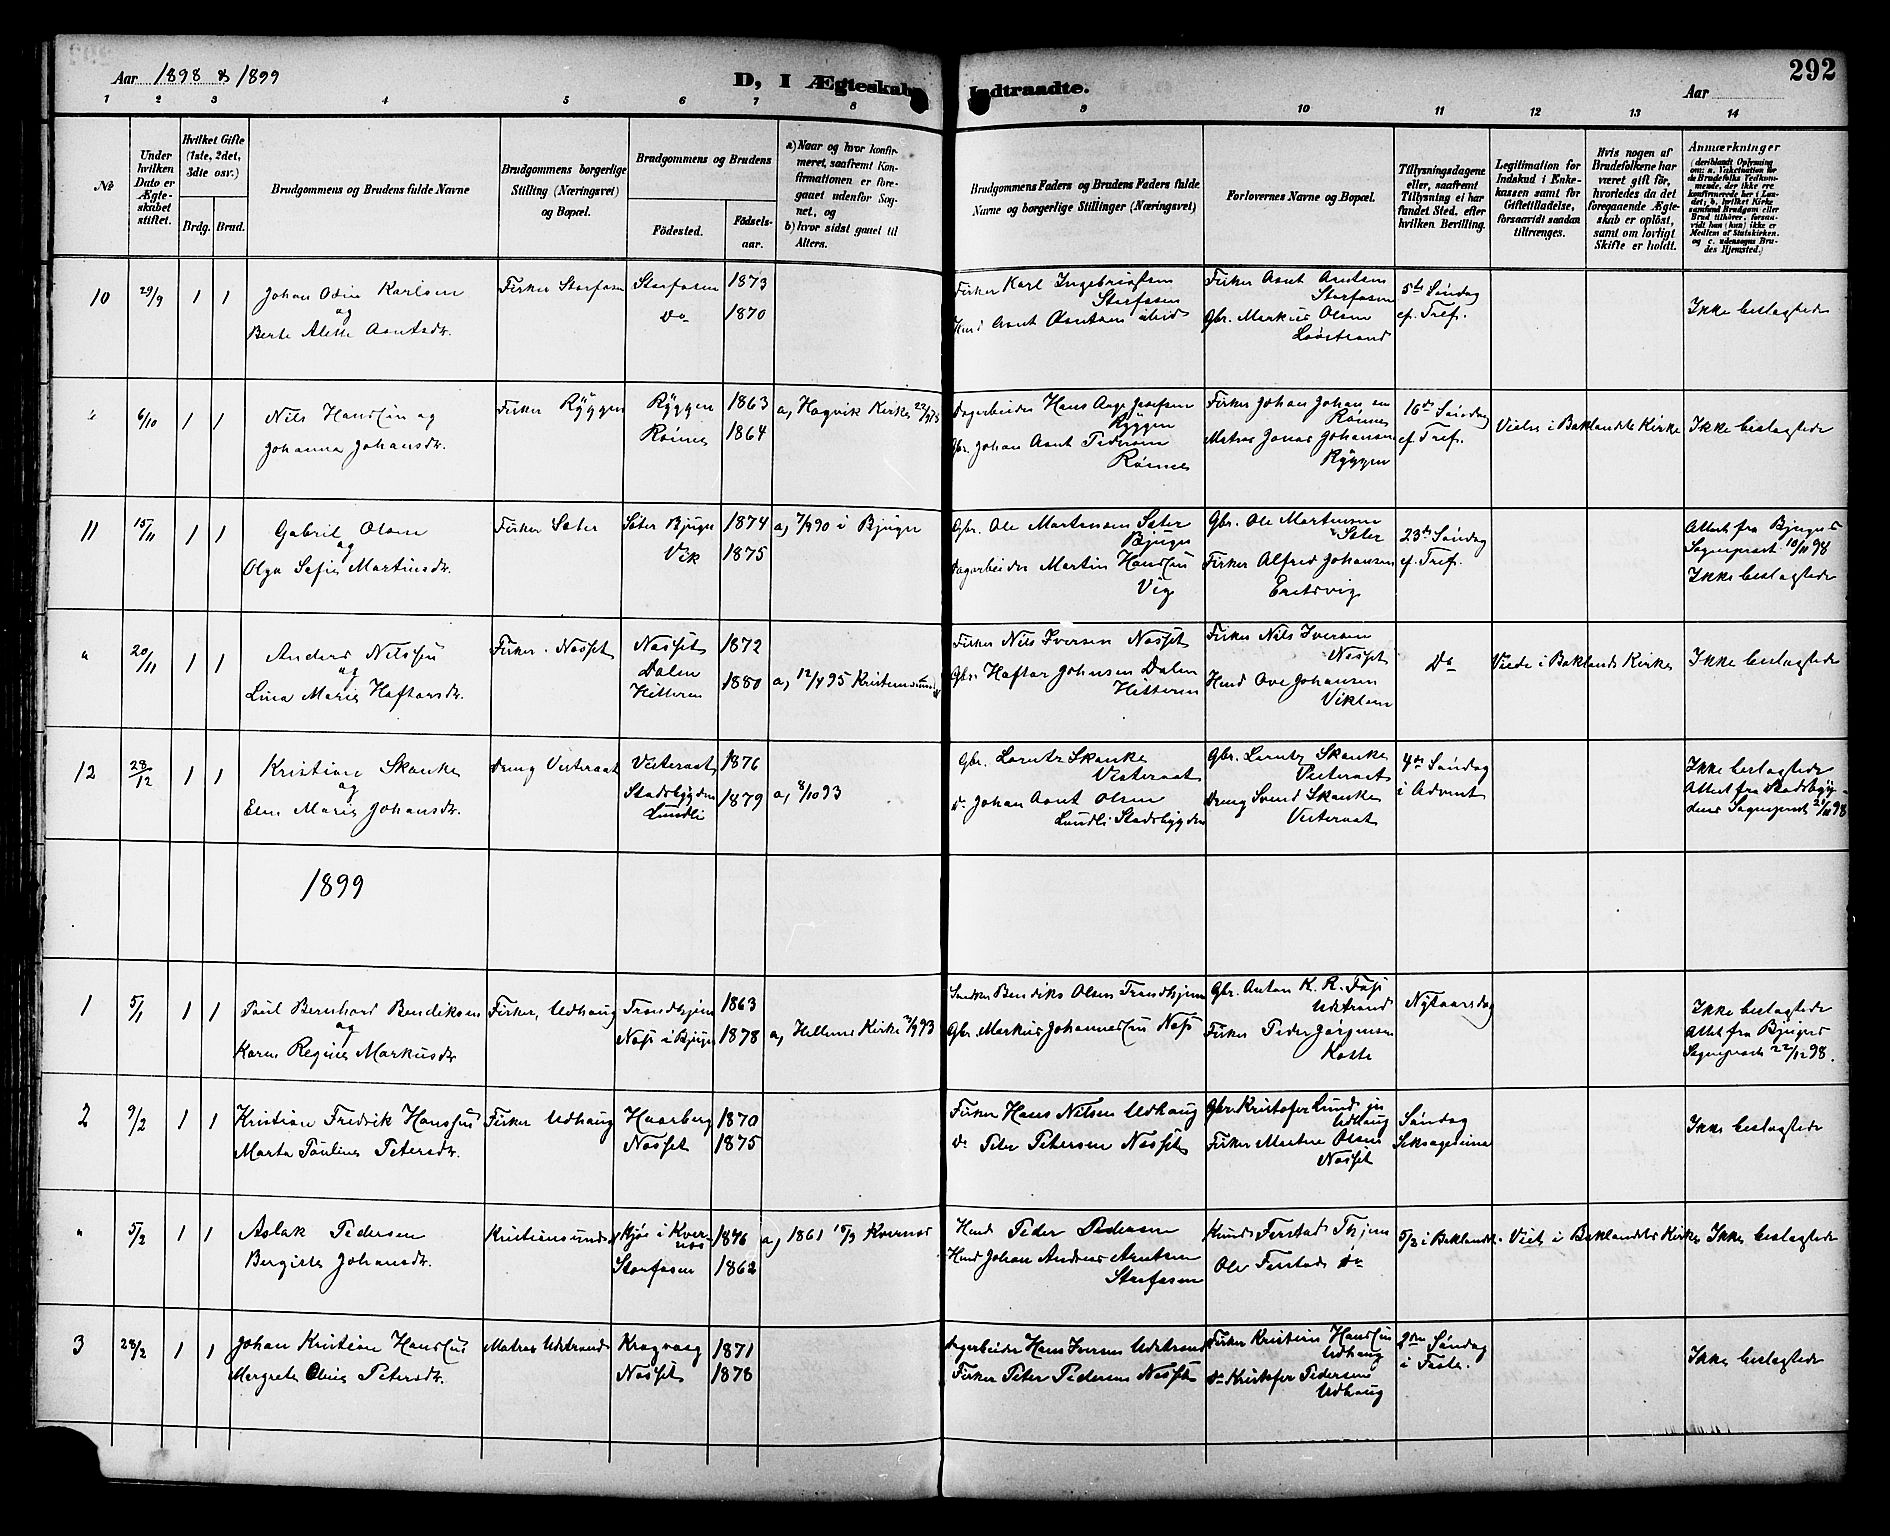 Aar 1898 & 1899
D, I Ægteskab Indtraadte.
292
Aar
1 2 3 4 5 6 7 8 9 10 11 12 13 14
No
Under hvilken Dato er Ægteskabet stiftet.
Hvilket Gifte (1ste, 2det, 3die osv.)
Brdg. Brud.
Brudgommens og Brudens fulde Navne
Brudgommens borgerlige Stilling (Næringsvei) og Bopæl.
Brudgommens og Brudens
Fødested.
Fødselsaar.
a) Naar og hvor konfirmeret, saafremt Konfirmationen er foregaaet udenfor Sognet, og
b) hvor sidst gaaet til Alters.
Brudgommens Faders og Brudens Faders fulde Navne og borgerlige Stillinger (Næringsvei)
Forlovernes Navne og Bopæl.
Tillysningsdagene eller, saafremt Tillysning ei har fundet Sted, efter hvilken Bevilling.
Legitimation for Indskud i Enkekassen samt for Giftetilladelse, forsaavidt saadan tiltrænges.
Hvis nogen af Brudefolkene har været gift før, hvorledes da det foregaaende Ægteskab er opløst, samt om lovligt Skifte er holdt.
Anmærkninger
(deriblandt Oplysning om: a. Vakcination for de Brudefolks Vedkommende, der ikke ere konfirmerede her i Landet; b. hvilket Kirkesamfund Brudgom eller Brud tilhører, forsaavidt han (hun) ikke er Medlem af Statskirken, og c. udensogns Brudes Hjemsted.)
10 29/9 1 1 Johan Odin Karlsen
og
Berte Aleth Aantsdr.
Fisker Storfosen
Storfosen 1873
Do 1870
Fisker Karl Ingebrigtsen
Storfosen
Hmd Aant Aantsen ibid
Fisker Aant Aantsen
Storfosen
Gbr. Markus Olsen
5te Søndag
ef. Tref.
Ikke beslægtede
" 6/10 1 1 Nils Hanssen og
Johanna Johansdr.
Fisker Ryggen
Ryggen 1863
Rønne 1864
a, Hagvik Kirke
Dagarbeider Hans Aage Josefsen
Ryggen
Gbr. Johan Aant Pedersen
Rønne
Fisker Johan Johansen
Rønne
Matros Jonas Johansen
Ryggen
16de Søndag
ef. Tref.
Viede i Baklandets Kirke
Ikke beslægtede
11 15/11 1 1 Gabriel Olsen
og
Olga Sofie Martinsdr.
Fisker Sæter
Sæter Bjugn 1874
Vik 1875
a, 7/9 90 i Bjugn
Gbr. Ole Martensen Sæter
Bjugn
Dagarbeider Martin Hanssen
Vig
Gbr. Ole Martensen
Sæter
Fisker Alfred Johansen
23de Søndag
ef. Tref.
Attest fra Bjugns
Sogneprest 10/11 98
Ikke beslægtede
" 20/11 1 1 Anders Nilssen
og
Lina Marie Haftorsdr.
Fisker. Næsset
Næsset 1872
Dalen
Hitteren 1880
a, 12/4 95 Kristiansund
Fisker Nils Iversen Næsset
Gbr. Haftor Johnsen Dalen
Hitteren
Fisker Nils Iversen
Næsset
Hmd Ove Johansen
Viklem
Do
Viede i Baklands Kirke
Ikke beslægtede
12 28/12 1 1 Kristian Skanke
og
Elen Marie Johansdr.
Dreng Vesteraat
Vesteraat 1876
Stadsbygden
Lundli 1879
a, 8/10 93
Gbr. Lorntz Skanke
Vesteraat
Do Johan Aant Olsen
Lundli Stadsbygden
Gbr. Lorntz Skanke
Vesteraat
Dreng Svend Skanke
Vesteraat
4de Søndag
i Advent
Ikke beslægtede
Attest fra Stadsbyg-
dens Sogneprest 21/11 98
1899
1 5/1 1 1 Paul Bernhard Bendiksen
og
Karen Regine Markusdr.
Fisker, Udhaug
Trondhjem 1863
Næs i Bjugn 1878
a, Hellems Kirke 93
Bendiks Olsen Trondhjem
Gbr. Markus Johannessen Næs
Gbr. Anton K. R. Foss
Udstrand
Fisker Peder Jørgensen
Nytaarsdag
Ikke beslægtede
Attest fra Bjugns
Sogneprest 22/12 98.
2 9/2 1 1 Kristian Fredrik Hanssen
Marta Pauline Petersdr.
Fisker Udhaug
Haarberg 1870
Næsset 1875
Fisker Hans Nilsen Udhaug
Do Peter Petersen Næsset
Gbr. Kristofer Lund jr
Udhaug
Fisker Martin Olsen
Næsset
Søndag
Seksagesima
Ikke beslægtede
" 5/2 1 1 Aslak Pedersen
Bergitte Johansdr.
Kristiansund
i Kvernes 1846
Storfosen 1862
a, 1861 15/9 Kvernes
Hmd Peder Pedersen
Hmd Johan Andreas Arntsen
Storfosen
Ferstad Thjem
Ole Ferstad Do
5/2 i Baklandet.
Viet i Baklandets Kirke
Ikke beslægtede
3 28/2 1 1 Johan Kristian Hanssen
Mergrete Oline Petersdr.
Matros Udstrand
Kragvaag 1871
Næsset 1878
Dagarbeider Hans Iversen Udstrand
Fisker Peter Pedersen Næsset
Fisker Kristian Hanssen
Udhaug
Do Kristofer Pedersen
Udhaug
2den Søndag
i Faste.
Ikke beslægtede